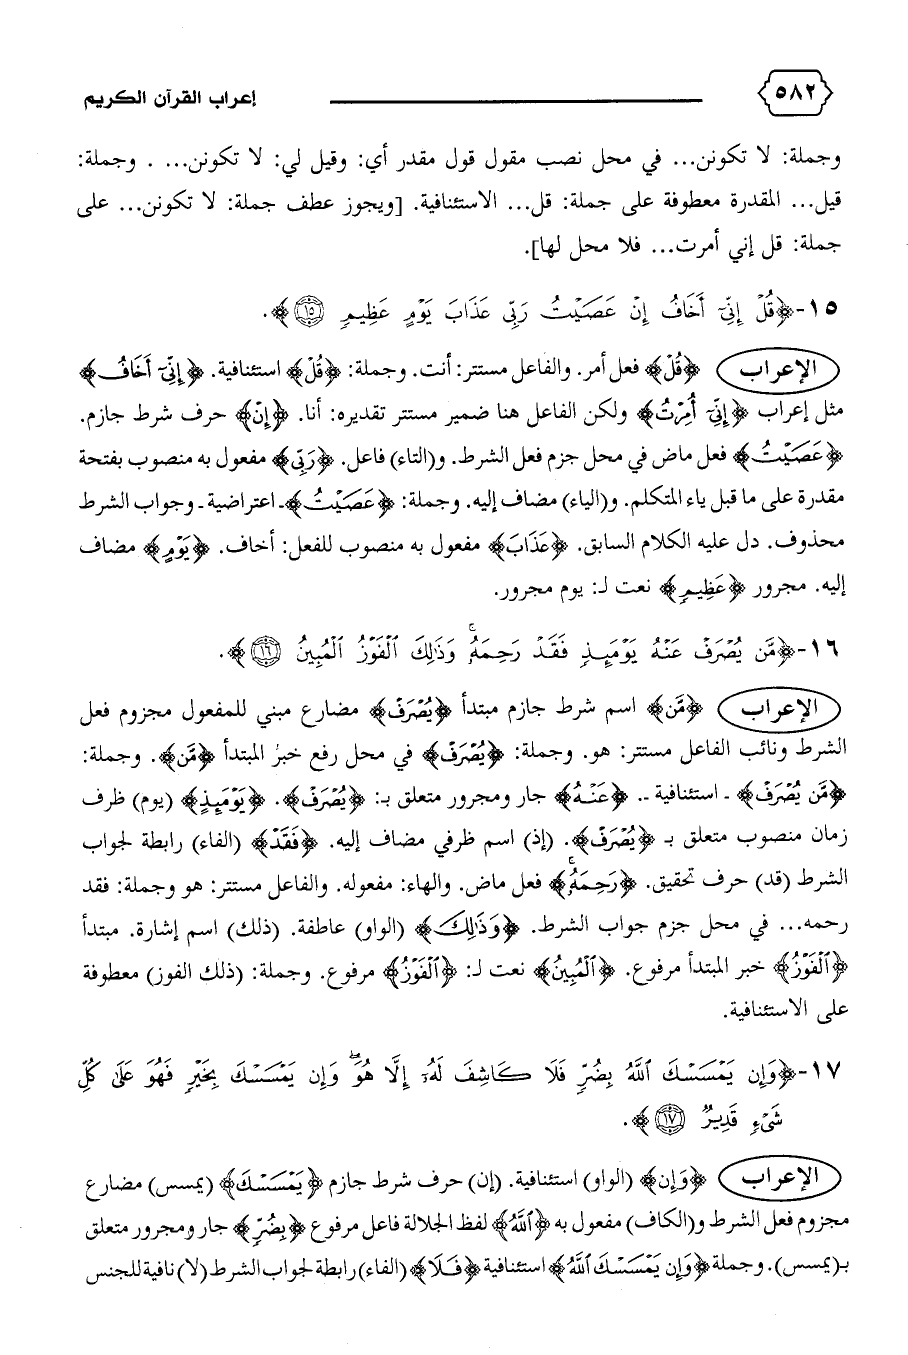 ٥٨٢ إعراب القرآن الكريم
وجملة: لا تكونن... في محل نصب مقول قول مقدر أي: وقيل لي: لا تكونن... . وجملة:
قيل... المقدرة معطوفة على جملة: قل... الاستئنافية. [ويجوز عطف جملة: لا تكونن... على
جملة: قل إني أمرت... فلا محل لها].
١٥-﴿قُلْ إِنِّيٓ أَخَافُ إِنْ عَصَيْتُ رَبِّي عَذَابَ يَوْمٍ عَظِيمٍ ١٥﴾.
الإعراب ﴿قُلْ﴾ فعل أمر. والفاعل مستتر: أنت. وجملة: ﴿قُلْ﴾ استئنافية. ﴿إِنِّيٓ أَخَافُ﴾
مثل إعراب ﴿إِنِّيٓ أُمِرْتُ﴾ ولكن الفاعل هنا ضمير مستتر تقديره: أنا. ﴿إِنْ﴾ حرف شرط جازم.
﴿عَصَيْتُ﴾ فعل ماض في محل جزم فعل الشرط. و(التاء) فاعل. ﴿رَبِّي﴾ مفعول به منصوب بفتحة
مقدرة على ما قبل ياء المتكلم. و(الياء) مضاف إليه. وجملة: ﴿عَصَيْتُ﴾ـ اعتراضية ـ وجواب الشرط
محذوف. دل عليه الكلام السابق. ﴿عَذَابَ﴾ مفعول به منصوب للفعل: أخاف. ﴿يَوْمٍ﴾ مضاف
إليه. مجرور ﴿عَظِيمٍ﴾ نعت لـ: يوم مجرور.
١٦-﴿مَّن يُصْرَفْ عَنْهُ يَوْمَئِذٍ فَقَدْ رَحِمَهُۥ وَذَٰلِكَ ٱلْفَوْزُ ٱلْمُبِينُ ١٦﴾.
الإعراب ﴿مَّن﴾ اسم شرط جازم مبتدأ ﴿يُصْرَفْ﴾ مضارع مبني للمفعول مجزوم فعل
الشرط ونائب الفاعل مستتر: هو. وجملة: ﴿يُصْرَفْ﴾ في محل رفع خبرُ المبتدأ ﴿مَّن﴾. وجملة:
﴿مَّن يُصْرَفْ﴾ ـ استئنافية ـ. ﴿عَنْهُ﴾ جار ومجرور متعلق بـ: ﴿يُصْرَفْ﴾. ﴿يَوْمَئِذٍ﴾ (يوم) ظرف
زمان منصوب متعلق بـ ﴿يُصْرَفْ﴾. (إذ) اسم ظرفي مضاف إليه. ﴿فَقَدْ﴾ (الفاء) رابطة لجواب
الشرط (قد) حرف تحقيق. ﴿رَحِمَهُۥ﴾ فعل ماض. والهاء: مفعوله. والفاعل مستتر: هو وجملة: فقد
رحمه... في محل جزم جواب الشرط. ﴿وَذَٰلِكَ﴾ (الواو) عاطفة. (ذلك) اسم إشارة. مبتدأ
﴿ٱلْفَوْزُ﴾ خبر المبتدأ مرفوع. ﴿ٱلْمُبِينُ﴾ نعت لـ: ﴿ٱلْفَوْزُ﴾ مرفوع. وجملة: (ذلك الفوز) معطوفة
على الاستئنافية.
١٧-﴿وَإِن يَمْسَسْكَ ٱللَّهُ بِضُرٍّ فَلَا كَاشِفَ لَهُۥٓ إِلَّا هُوَ ۖ وَإِن يَمْسَسْكَ بِخَيْرٍ فَهُوَ عَلَىٰ كُلِّ
شَيْءٍ قَدِيرٌ ١٧﴾.
الإعراب ﴿وَإِن﴾ (الواو) استئنافية. (إن) حرف شرط جازم ﴿يَمْسَسْكَ﴾ (يمسس) مضارع
مجزوم فعل الشرط و(الكاف) مفعول به ﴿ٱللَّهُ﴾ لفظ الجلالة فاعل مرفوع ﴿بِضُرٍّ﴾ جار ومجرور متعلق
بـ(يمسس). وجملة ﴿وَإِن يَمْسَسْكَ ٱللَّهُ﴾ استئنافية ﴿فَلَا﴾ (الفاء) رابطة لجواب الشرط (لا) نافية للجنس